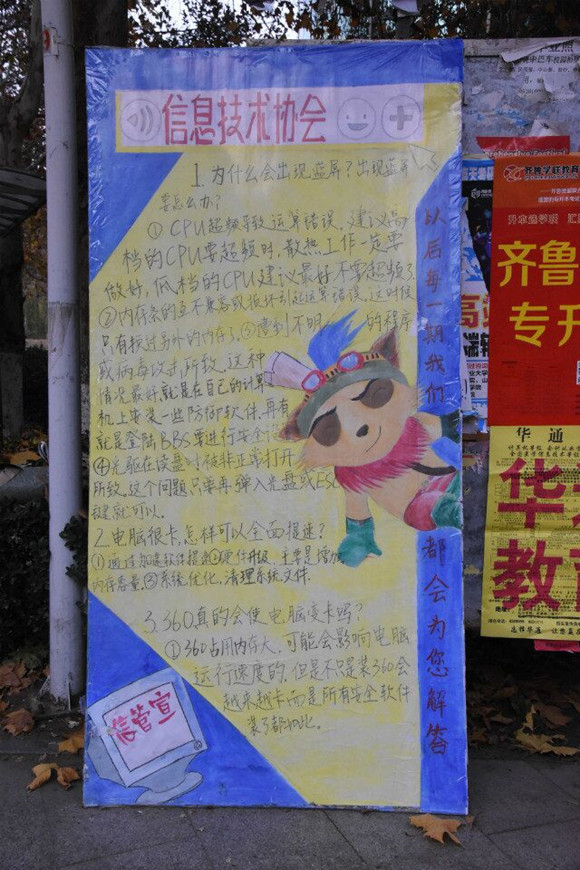 信息技术协会
1.为什么会出现蓝屏?出现蓝屏
要怎么办?
①CPU超频导致运算错误、建议高
档的CPU要超频时,散热工作一定要
做好,低档的CPU建议最好不要超频了
②内存条的互不兼容或损坏引起运算错误,这时候
只有换过另外的内存了,③遭到不明的程序
或病毒攻击所致,这种
情况最好就是在自己的计算
机上安装一些防御软件,再有
就是登陆BBS要进行安全
④光驱在读盘时被非正常打开
所致,这个问题只要再弹入光盘或ESC
键就可以.
2.电脑很卡,怎样可以全面提速?
①通过加速软件提速②硬件升级,主要是增加
内存容量,③系统优化,清理系统文件.
3.360真的会使电脑变卡吗?
①360占用内存大,可能会影响电脑
运行速度的.但是不是装360会
越来越卡而是所有安全软件
装了都如此。
信管宣
以后每一期我们都会为您解答
齐鲁学旺教育
齐鲁
专升
华通
华
教育